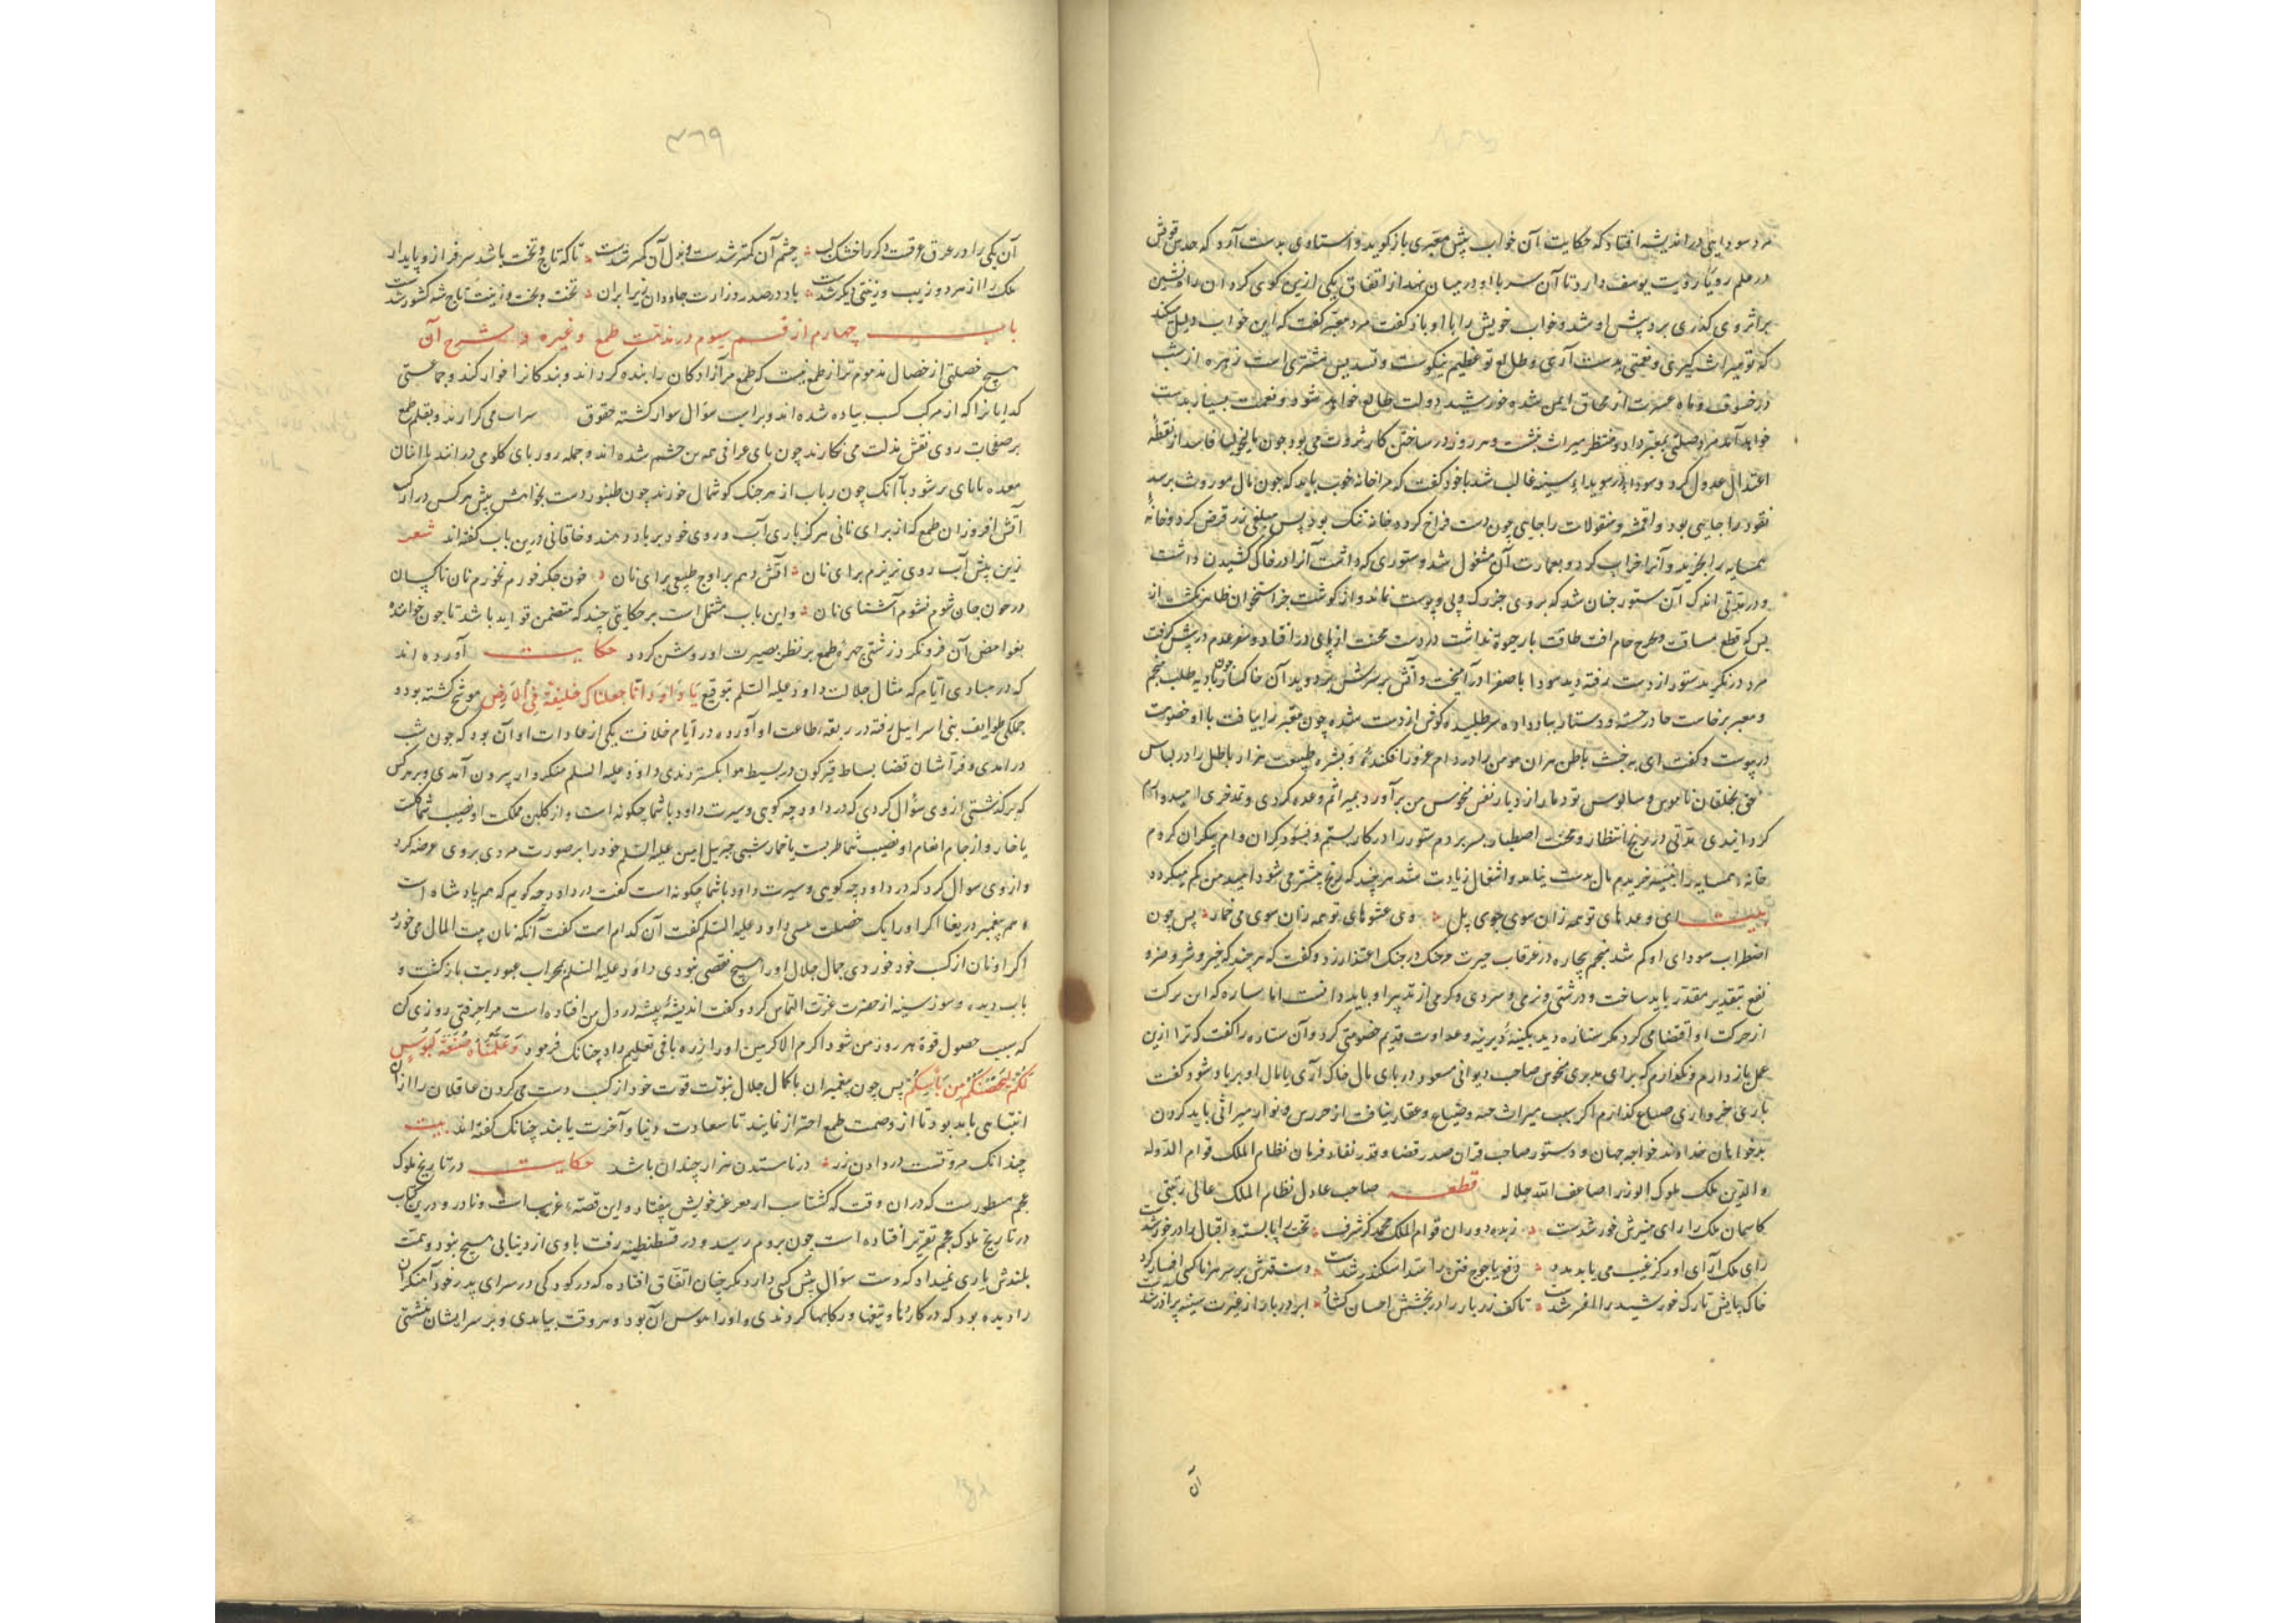 مرد سودایی در اندیشه افتاد که حکایت آن خواب پیش معبری باز گوید و استادی بدست آرد که حدس قوتش
در علم رویا رویت یوسف دارد تا آن سر با او در میان نهد از اتفاق یکی ازین کوی کردان راه نشین
براثر وی گذری برد پیش او شد و خواب خویش را با او باز گفت مرد معبر گفت که این خواب دلیل میکند
که تو میراث گیری و نعمتی بدست آری و طالع تو عظیم نیکوست و تسدیس مشتری است زهره از شب
خسوف و ماه عسرت از محاق ایمن شد و خورشید دولت طالع خواهد شود و نعمات بسیار بدست
خواهد آمد مرد صلتی بمعبر داد و منتظر میراث بنشست و هر روز در ساختن کار ثروت می بود چون مالیخولیا فاسد از نقطهٔ
اعتدال عدول کرد و سودا بر سویداء سینه غالب شد با خود گفت که مرا خانه خوب باید که چون مال موروث برسد
نقود را جایی بود و اقمشه و منقولات را جایی چون دست فراخ کرده خانه تنک بود پس مبلغی زر قرض کرد و خانهٔ
همسایه را بخرید و آنرا خراب کرد و بعمارت آن مشغول شد و ستوری که داشت آنرا در خاک کشیدن داشت
و در مدتی اندک آن ستور چنان شد که بر وی جز رک و پی و پوست نماند و از گوشت جز استخوان ظاهر نکشت از
بس که قطع مسافت و طرح خام افت طاقت بار جوهٔ نداشت در دست محنت از پای در افتاد و سفر عدم در پیش گرفت
مرد در نگرید ستور از دست رفته دید سودا با صفرا در آمیخت و آتش بر سرش بر دوید آن خاکسار چون باد به طلب منجم
و معبر برخاست جا در جسته و دستار بباد داده می طلبید و کوفش از دست شده چون معبر را بیافت با او خصومت
در پیوست و گفت ای به خبث باطن هزاران مومن را در دام غرور افکنده و بشره طبیعت هزار باطل را در لباس
حق بخلقان ناموس و سالوس تو دمار از دیار نفس منحوس من برآورد بمیراثم وعده کردی و بتدفری امیدوارم
گردانیدی مدتی در رنج انتظار و محنت اصطبار بسر بردم ستور را در کار بستم و بسود گران وام بیکران کردم
خانه همسایه را بخریدم مال بدست نیامد و اشغال زیادت شد هر چند که رنج بیشتر می شود امید من کم میگردد
بیت ای وعدهای تو همه زان سوی جوی پل وی عشوهای تو همه زان سوی می خمار پس چون
اضطراب سودای او کم شد منجم بیچاره در غرقاب حیرت چنک در چنک اعتذار زد و گفت که هر چند که خیر و شر و ضر و
نفع بتقدیر مقدر باید ساخت و درشتی و نرمی و سردی و گرمی از تدبیر او باید دانست اما ستاره که این برکت
از حرکت او اقتضا می کرد مگر ستاره دید بکینهٔ دیرینه و عداوت قدیم خصومتی کرد و آن ستاره را گفت که ترا ازین
عمل باز دارم و نکذارم که برای مدبری منحوس صاحب دیوانی مسعود در پای مال خاک آری یا مال او برباد شود گفت
باری خبر داری ضیاع گذارم اگر بسبب میراث جبه و ضیاع و عقار نیافت از خرس و نوار میراثی باید کردن
بدخواهان خداوند خواجه جهان و دستور صاحب قران صدر قضا و قدر نفاد فرمان نظام الملک قوام الدوله
والدین ملک ملوک الوزرا ضاعف الله جلاله قطعه صاحب عادل نظام الملک عالی رتبتی
کاسمان ملک را رای منیرش خورشدست زبده دوران قوام الملک محمد کز شرف تخت را پا بسته و اقبال را در خورشدست
رای ملک آرای او کز غیب می یابد مدد دفع یاجوج فتن را سد اسکندر شدست دست قدرش بر سر هر ناکسی افسار کرد
خاک پایش تارک خورشید را افسر شدست تا کف زر بار را در بخشش احسان گشاد ابر دربار از غیرت سینه پر آذر شدست
آن
۳۶۹
آن یکی را در عرق غرقست و دگر را خشک لب چشم آن گمتر شدست و بذل آن گمتر شدست تا که تاج و تخت باشد سرفراز و پایدار
ملک را از مرد و زیب و زینتی دیگر شدست باد در صدر وزارت جاودان زیر ایران تخت و بخت و زینت تاج شه کشور شدست
باب چهارم از قسم سیوم در مذمت طمع و غیره و شرح آن
هیچ خصلتی از خصال مذموم تر از طمع نیست که طمع مر آزادگان را بنده کرداند و بندگانرا خوار کند و جماعتی
گدایانرا که از مرکب کسب پیاده شده اند و بر اسب سؤال سوار گشته حقوق سراب می گرارند و بقلم طمع
بر صفحات روی نقش مذلت می نگارند چون پای عرابی همه تن چشم شده اند و جمله روز پای کلو می درانند با انبان
معده نا پای بر شود با آنک چون رباب از هر چنک گوشمال خورند چون طنبور دست بخواهش پیش هر کس دراز کنند
آتش افروزان طمع که از برای نانی هر کز باری آب و روی خود بر باد دهند و خاقانی درین باب گفته اند شعر
زین پیش آب روی نریزم برای نان آتش دهم براوج طبیعی برای نان خون جگر خورم نخورم نان ناکسان
در خون جان شوم نشوم آشنای نان و این باب مشتمل است بر حکایتی چند که متضمن فواید باشد تا چون خواننده
بغوامض آن فرو نگرد زشتی چهرهٔ طمع بر نظر بصیرت او روشن گردد حکایت آورده اند
که در مبادی ایام که مثال جلالت داود علیه السلم بتوقیع یَا دَاوُدَ اِنّا جعلناک خلیفة فِی الأرض موشح گشته بود و
جملگی طوایف بنی اسرائیل رقبه در ربقه طاعت او آورده در ایام خلافت یکی از عادات او آن بود که چون شب
در امدی و فراشان قضا بساط قیرگون در بسیط هوا بگستردندی داود علیه السلم متنکروار بیرون آمدی و بر هر کس
که بر گذشتی از وی سؤال کردی که در داود چه گویی و سیرت داود با شما چگونه است و از گلبن مملکت او نصیب شما گلست
یا خار و از جام انعام او نصیب شما طربست یا خمار شبی جبریل امین علیه السلم خود را بر صورت مردی بروی عرضه کرد
و از وی سوال کرد که در داود چه گویی و سیرت داود با شما چگونه است گفت در داود چه گویم که هم پادشاه است
و هم پیغمبر دریغا اگر او را یک خصلت نیستی داود علیه السلم گفت آن کدام است گفت آنکه نان بیت المال می خورد
اگر او نان از کسب خود خوردی جمال جلال او را هیچ نقصی نبودی داود علیه السلم بمحراب عبودیت بازگشت و
باب دیده و سوز سینه از حضرت عزت التماس کرد و گفت اندیشهٔ پیشه در دل من افتاده است مرا حرفتی روزی کن
که سبب حصول قوة هر روز من شود اکرم الاکرمین او را زره بافی تعلیم داد چنانک فرمود وَعَلَّمْنَاهُ صَنْعَةَ لَبُوسٍ
لَکُمْ لِتُحْصِنَکُمْ مِن بَأْسِکُمْ پس چون پیغمبران با کمال جلال نبوت قوت خود از کسب دست می کردن عاقلان را ازان
انتباهی باید بود تا از وصمت طمع احتراز نمایند تا سعادت دنیا و آخرت یابند چنانک گفته اند بیت
چندانک مروتست در دادن زر در ناستدن هزار چندان باشد حکایت در تاریخ ملوک
عجم مسطورست که دران وقت که گشتاسب از مقر عز خویش بیفتاد و این قصه غریب است و نادر و درین کتاب
در تاریخ ملوک عجم تقریر افتاده است چون بروم رسید و در قسطنطنیه رفت باوی از دنیایی هیچ نبود و همت
بلندش یاری نمیداد که دست سؤال پیش کسی دارد مگر چنان اتفاق افتاده که در کودکی در سرای پدر خود آهنگران
را دیده بود که در کاردها و تیغها و رکابها کردندی و او را هوس آن بود و هر وقت بیامدی و بر سر ایشان بنشستی